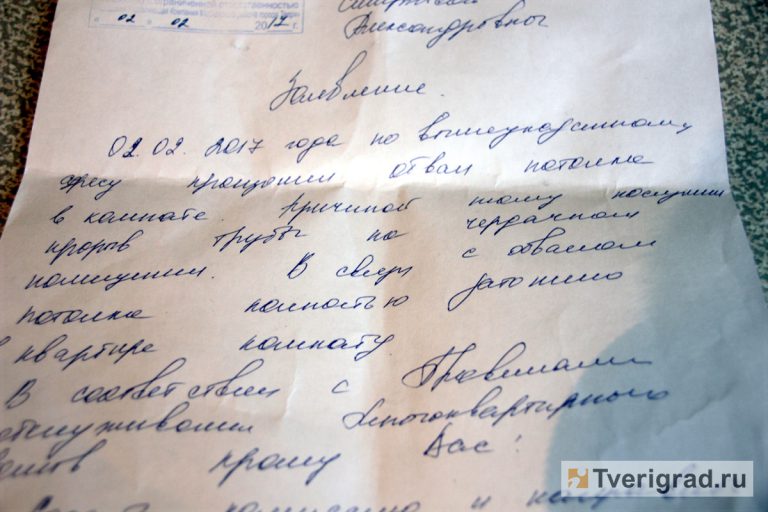 ограниченной ответственностью
02 02 2017 г.
Александровны
Заявление.
02.02.2017 года по вышеуказанному
адресу произошел обвал потолка
в комнате. Причиной тому послужил
прорыв трубы на чердачном
помещении. В связи с обвалом
потолка полностью затопило
в квартире комнату.
В соответствии с Правилами
обслуживания многоквартирного
прошу Вас:
и
Tverigrad.ru